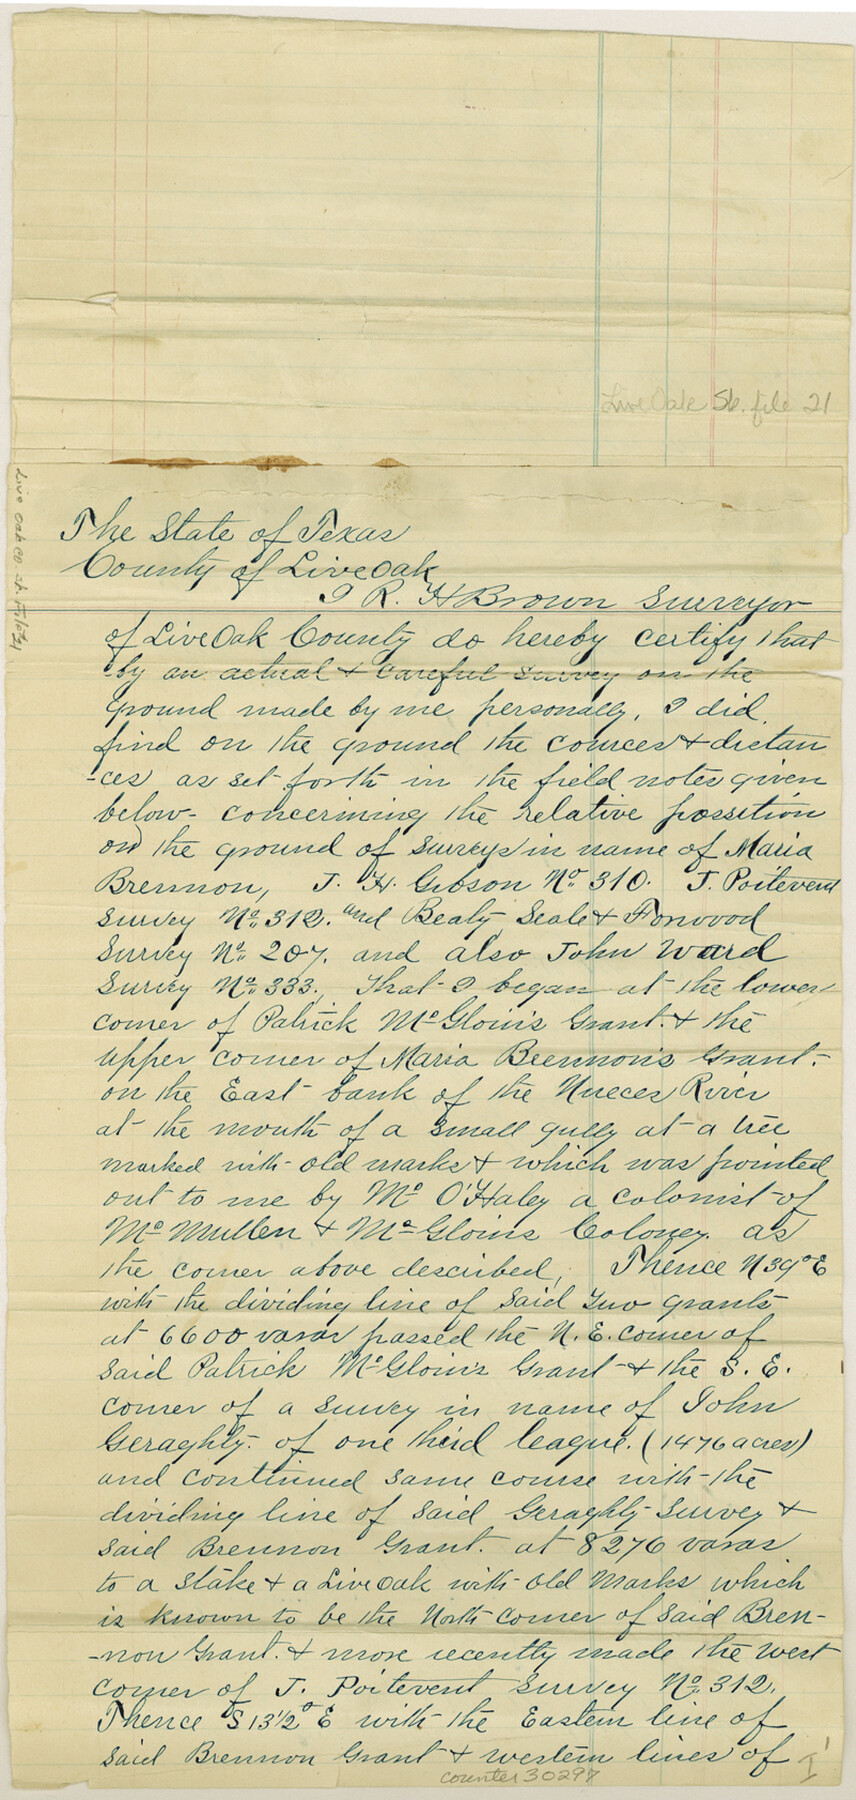 Live Oak Sk. file 21
Live Oak Co. Sk. File 21
The State of Texas
County of Live Oak
I R. H Brown Surveyor
of Live Oak County do hereby certify that
-by an actual & careful survey on the
ground made by me personally, I did
find on the ground the cources & distan
-ces as set forth in the field notes given
below- concerining the relative possition
on the ground of surveys in name of Maria
Brennon, J. H. Gibson No. 310. J. Poitevent
survey No. 312. and Beaty Seale & Forwood
Survey No. 207. and also John Ward
Survey No. 333. That I began at the lower
corner of Patrick McGloin's Grant. & the
upper corner of Maria Brennon's Grant.-
on the East bank of the Nueces River
at the mouth of a small gully at a tree
marked with old marks & which was pointed
out to me by Mc O'Haley a colonist of
McMullen & McGloins Coloney. as
the corner above described, Thence N39°E
with the dividing line of said Two grants
at 6600 varas passed the N.E. corner of
said Patrick McGloin's Grant & the S.E.
corner of a survey in name of John
Geraghty. of one third league. (1476 acres)
and continued same course with the
dividing line of said Geraghty Survey &
said Brennon Grant. at 8276 varas
to a stake & a Live Oak with old marks which
is known to be the North corner of said Bren-
-non Grant. & more recently made the West
corner of J. Poitevent survey No. 312.
Thence S 13½° E with the Eastern line of
said Brennon Grant & western lines of
counter 30297